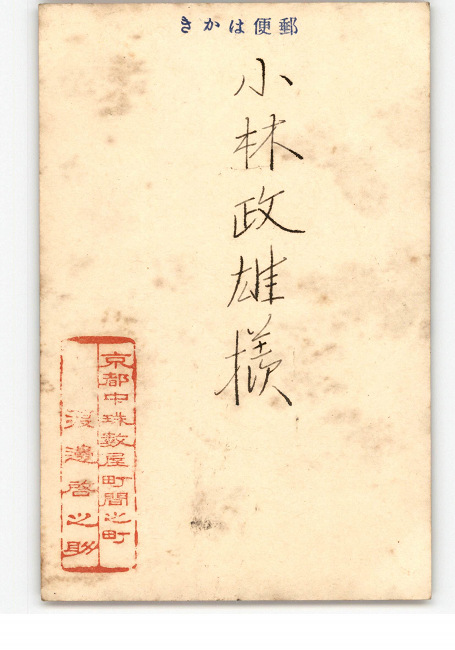 郵便はかき
小林政雄様
京都中珠数屋町間之町
渡邊啓之助